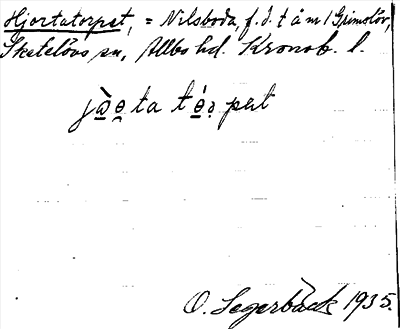 Hjortatorpet, = Nilsboda, f.d. t å m/Grimslöv,
Skatelövs sn, Allbo hd. Kronob. l.
jàe̯ta té̱ṛpət
O. Segerbäck 1935.